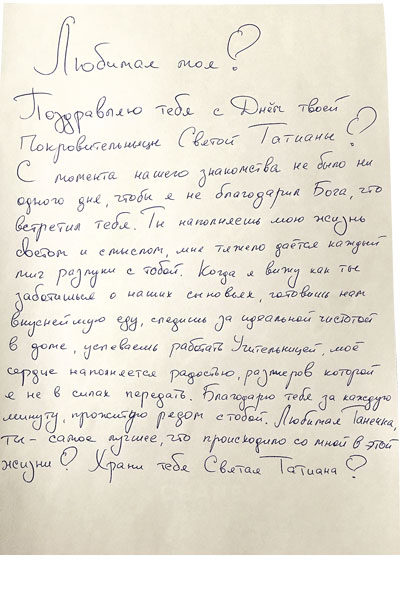 Любимая моя!
Поздравляю тебя с Днём твоей
Покровительницы Святой Татианы!
С момента нашего знакомства не было ни
одного дня, чтобы я не благодарил Бога, что
встретил тебя. Ты наполняешь мою жизнь
светом и смыслом, мне тяжело даётся каждый
миг разлуки с тобой. Когда я вижу как ты
заботишься о наших сыновьях, готовишь нам
вкуснейшую еду, следишь за идеальной чистотой
в доме, успеваешь работать Учительницей, моё
сердце наполняется радостью, размеров которой
я не в силах передать. Благодарю тебя за каждую
минуту, прожитую рядом с тобой. Любимая Танечка,
ты - самое лучшее, что происходило со мной в этой
жизни! Храни тебя Святая Татиана!